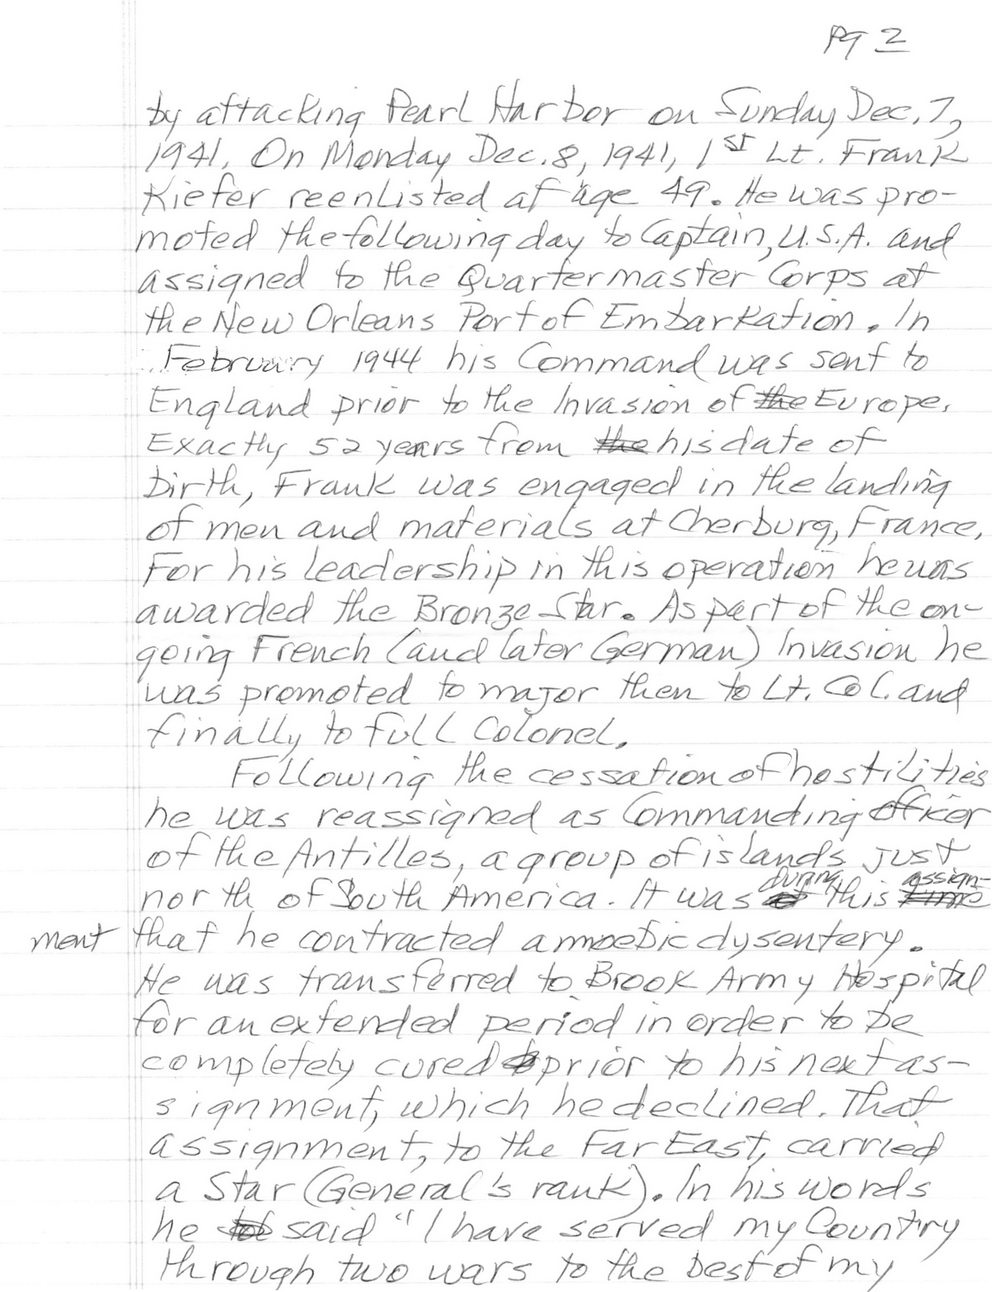 Pg 2
by attacking Pearl Harbor on Sunday Dec. 7,
1941. On Monday Dec. 8, 1941, 1st Lt. Frank
Kiefer reenlisted at age 49. He was pro-
moted the following day to Captain, U.S.A. and
assigned to the Quartermaster Corps at
the New Orleans Port of Embarkation. In
February 1944 his Command was sent to
England prior to the Invasion of the Europe.
Exactly 52 years from the his date of
birth, Frank was engaged in the landing
of men and materials at Cherburg, France.
For his leadership in this operation he was
awarded the Bronze Star. As part of the on-
going French (and later German) Invasion he
was promoted to major then to Lt. Col. and
finally to full Colonel.
Following the cessation of hostilities
he was reassigned as Commanding officer
of the Antilles, a group of islands just
north of South America. It was during this assign-
ment that he contracted amoebic dysentery.
He was transferred to Brook Army Hospital
for an extended period in order to be
completely cured prior to his next as-
signment, which he declined. That
assignment, to the Far East, carried
a Star (General's rank). In his words
he said "I have served my Country
through two wars to the best of my